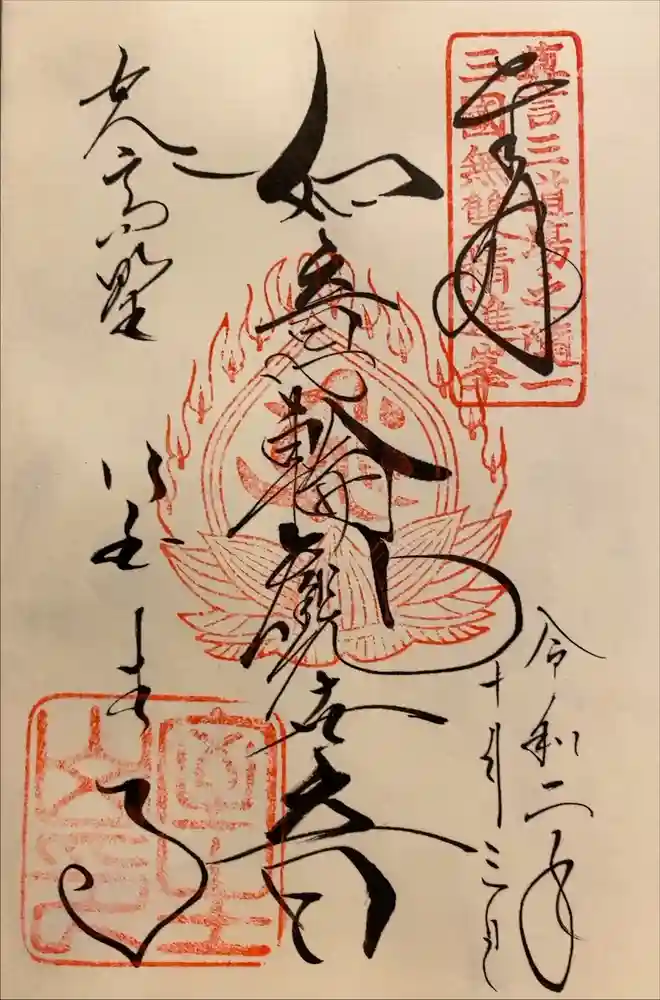 奉拝
真言三道場之随一
三國無雙之精進峯
令和二年
十月三日
如意輪観世音
女人高野
室生寺